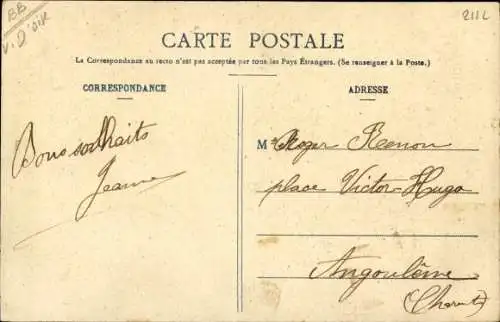 BB
V. D'oise
211L
CARTE POSTALE
La Correspondance au recto n'est pas acceptée par tous les Pays Étrangers. (Se renseigner à la Poste.)
CORRESPONDANCE
ADRESSE
Bons souhaits
Jeanne
M Roger Renon
place Victor Hugo
Angoulême
(Charente)